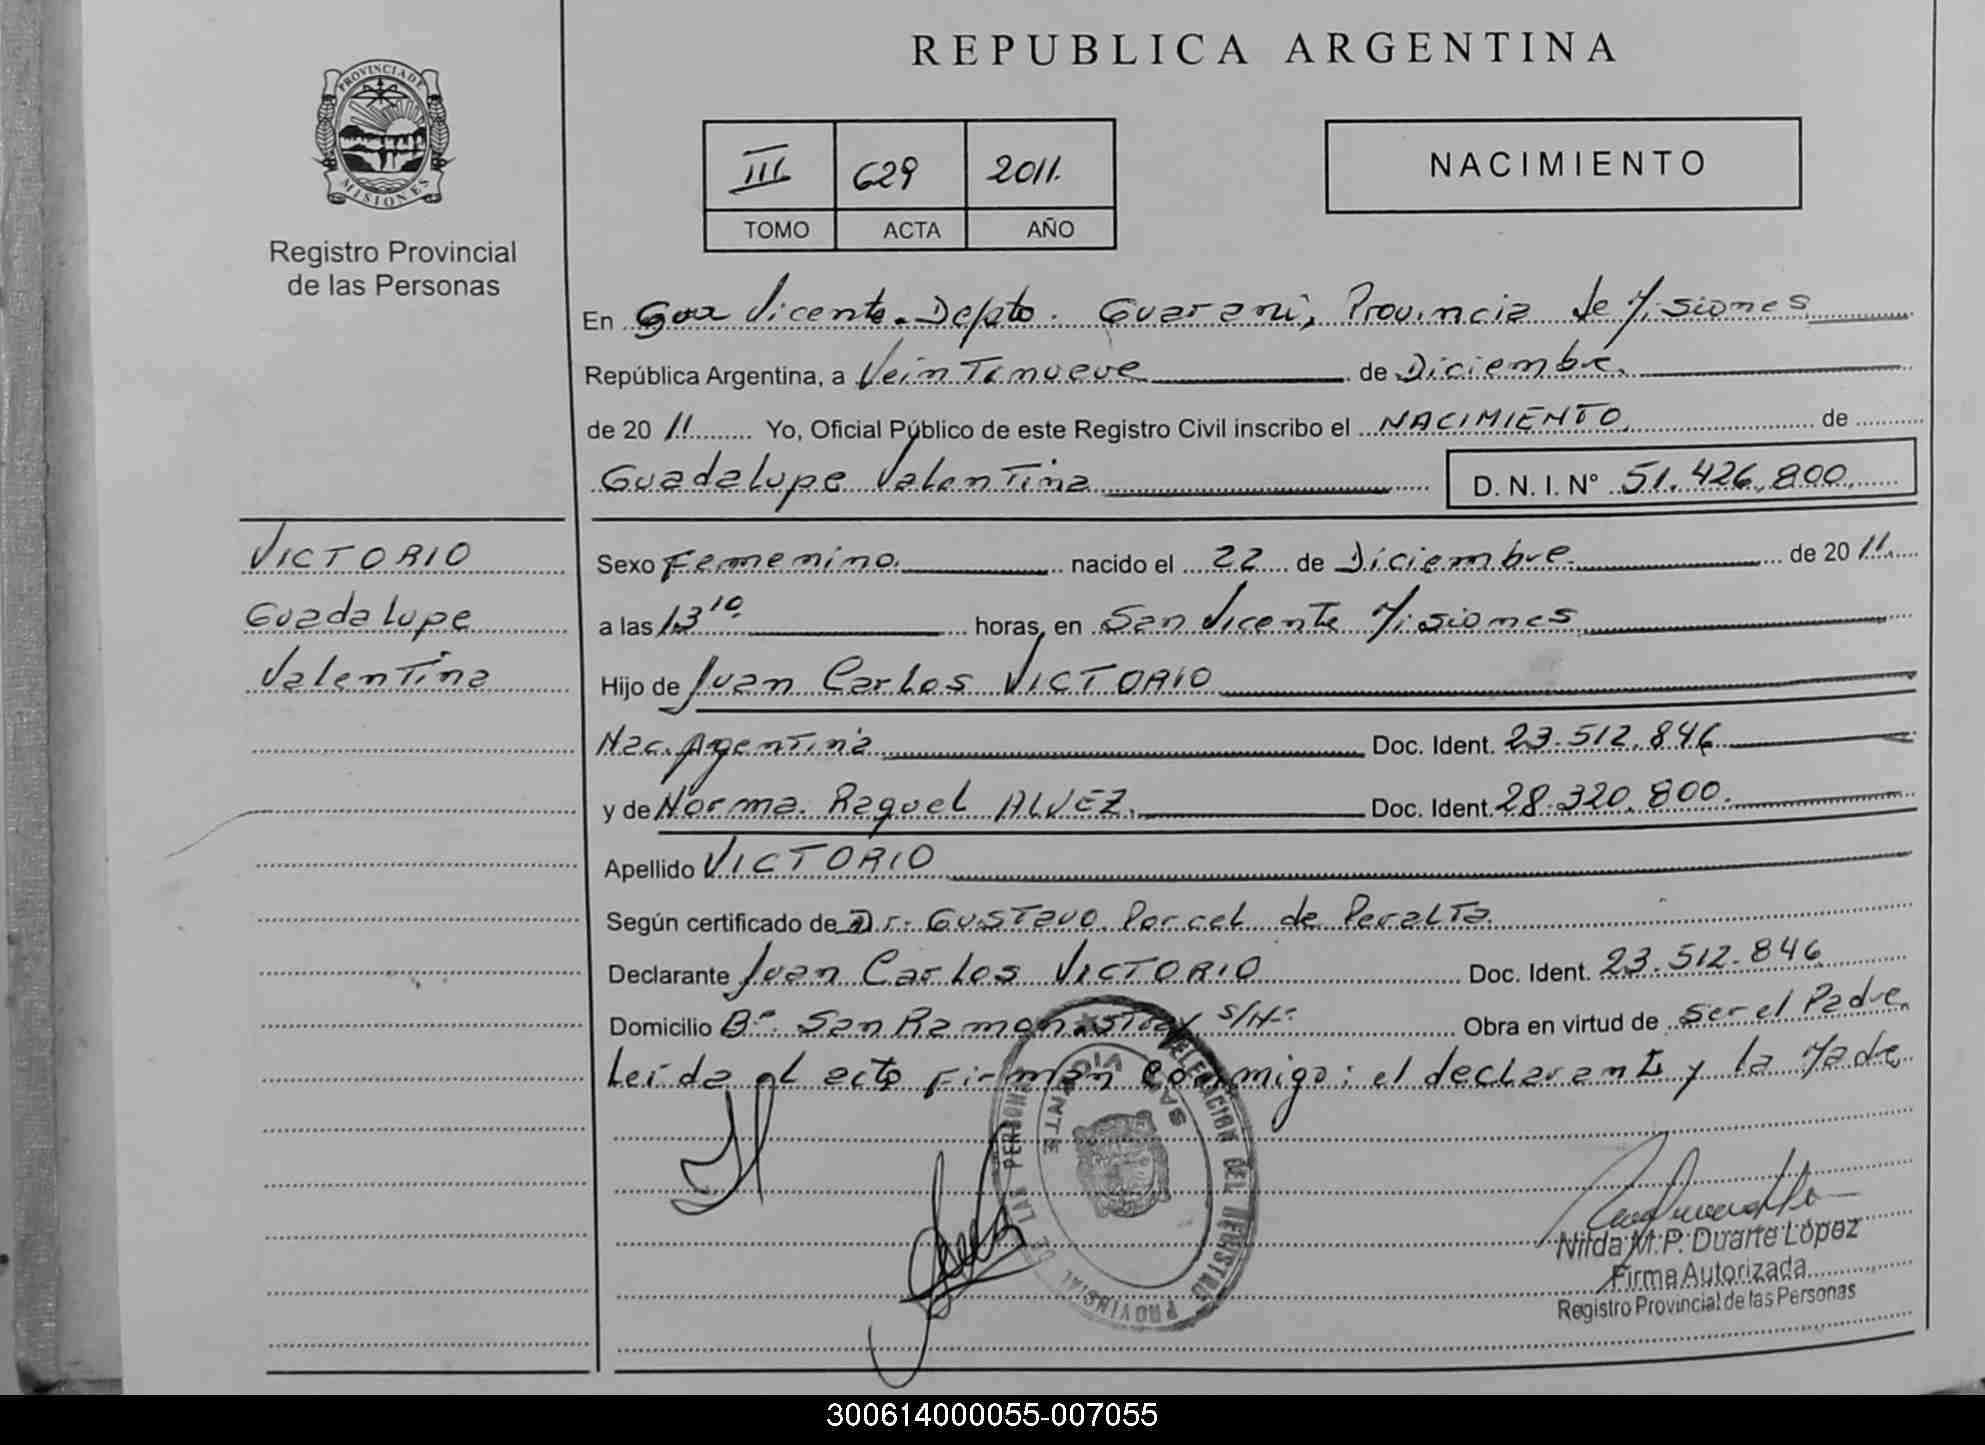 REPUBLICA ARGENTINA
PROVINCIA DE
MISIONES
Registro Provincial
de las Personas
III 629 2011.
TOMO ACTA AÑO
NACIMIENTO
En San Vicente. Depto. Guarani, Provincia de Misiones
República Argentina, a Veintinueve de Diciembre
de 20 11 Yo, Oficial Público de este Registro Civil inscribo el NACIMIENTO de
Guadalupe Valentina D. N. I. N° 51.426.800
VICTORIO
Guadalupe
Valentina
Sexo Femenino nacido el 22 de Diciembre de 20 11
a las 13 10 horas, en San Vicente Misiones
Hijo de Juan Carlos VICTORIO
Nac. Agentina Doc. Ident. 23.512.846
y de Norma Raquel ALVEZ. Doc. Ident. 28.320.800.
Apellido VICTORIO
Según certificado de Dr. Gustavo Porcel de Peralta
Declarante Juan Carlos VICTORIO Doc. Ident. 23.512.846
Domicilio B° San Ramon S/N° Obra en virtud de Ser el Padre
Leída el acto firman conmigo: el declarante y la Madre
DELEGACION DEL REGISTRO PROVINSIAL DE LAS PERSONAS
SAN VICENTE
Nilda M.P. Duarte López
Firma Autorizada
Registro Provincial de las Personas
300614000055-007055